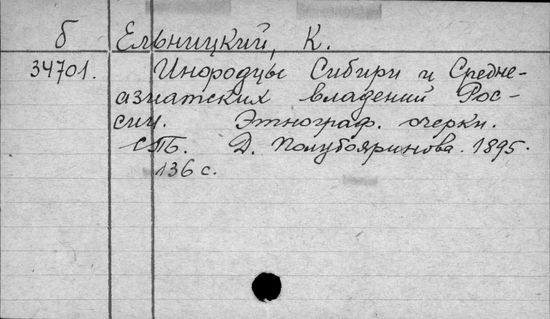 б Ельницкий, К.
34701. Инородцы Сибири и Средне-
азиатских владений Рос-
сии. Этнограф. очерки.
СПБ. Д. Полубояринова. 1895.
136 с.